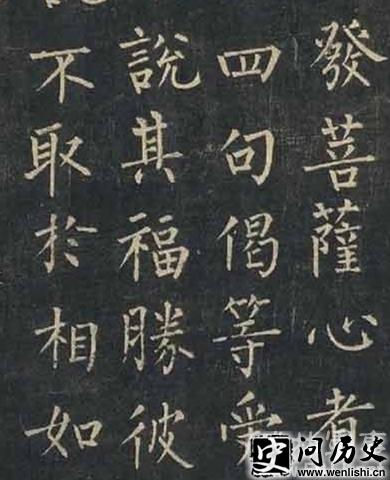 發菩薩心者
四句偈等受
說其福勝彼
不取於相如
史问历史
www.wenlishi.com